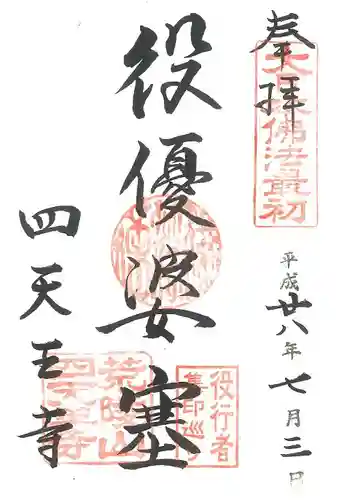 奉拝
大日本佛法最初
平成廿八年七月三日
役優婆塞
役行者
集印巡り
四天王寺
荒陵山
四天王寺